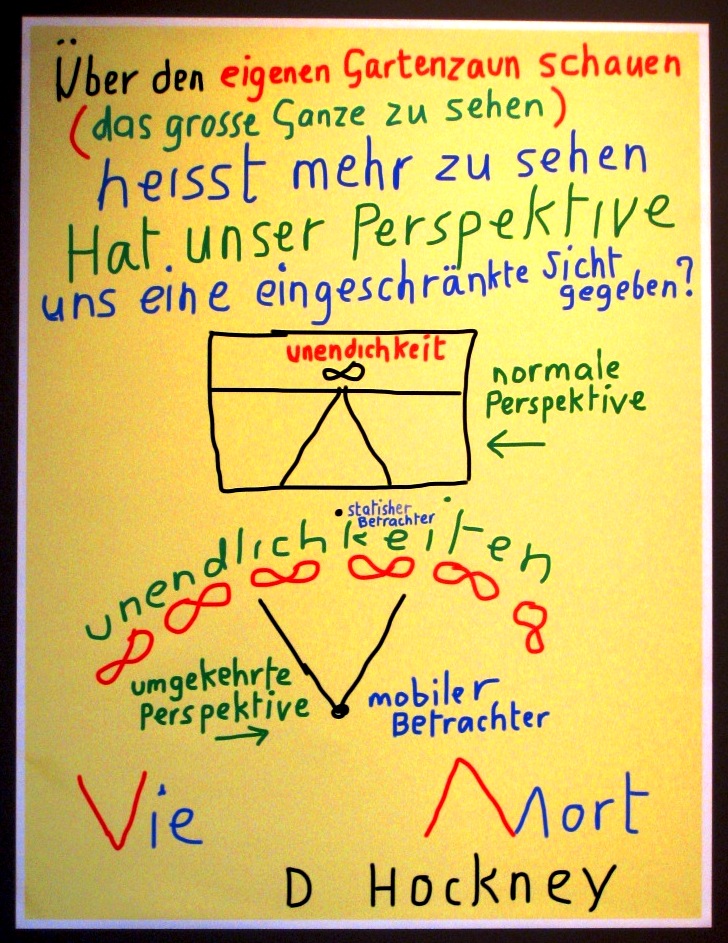 Über den eigenen Gartenzaun schauen
(das grosse Ganze zu sehen)
heisst mehr zu sehen
Hat unser Perspektive
uns eine eingeschränkte Sicht
gegeben?
unendichkeit
∞
normale
Perspektive
←
statisher
Betrachter
unendlichkeiten
∞ ∞ ∞ ∞ ∞ ∞
umgekehrte
Perspektive
→
mobiler
Betrachter
Vie Mort
D Hockney